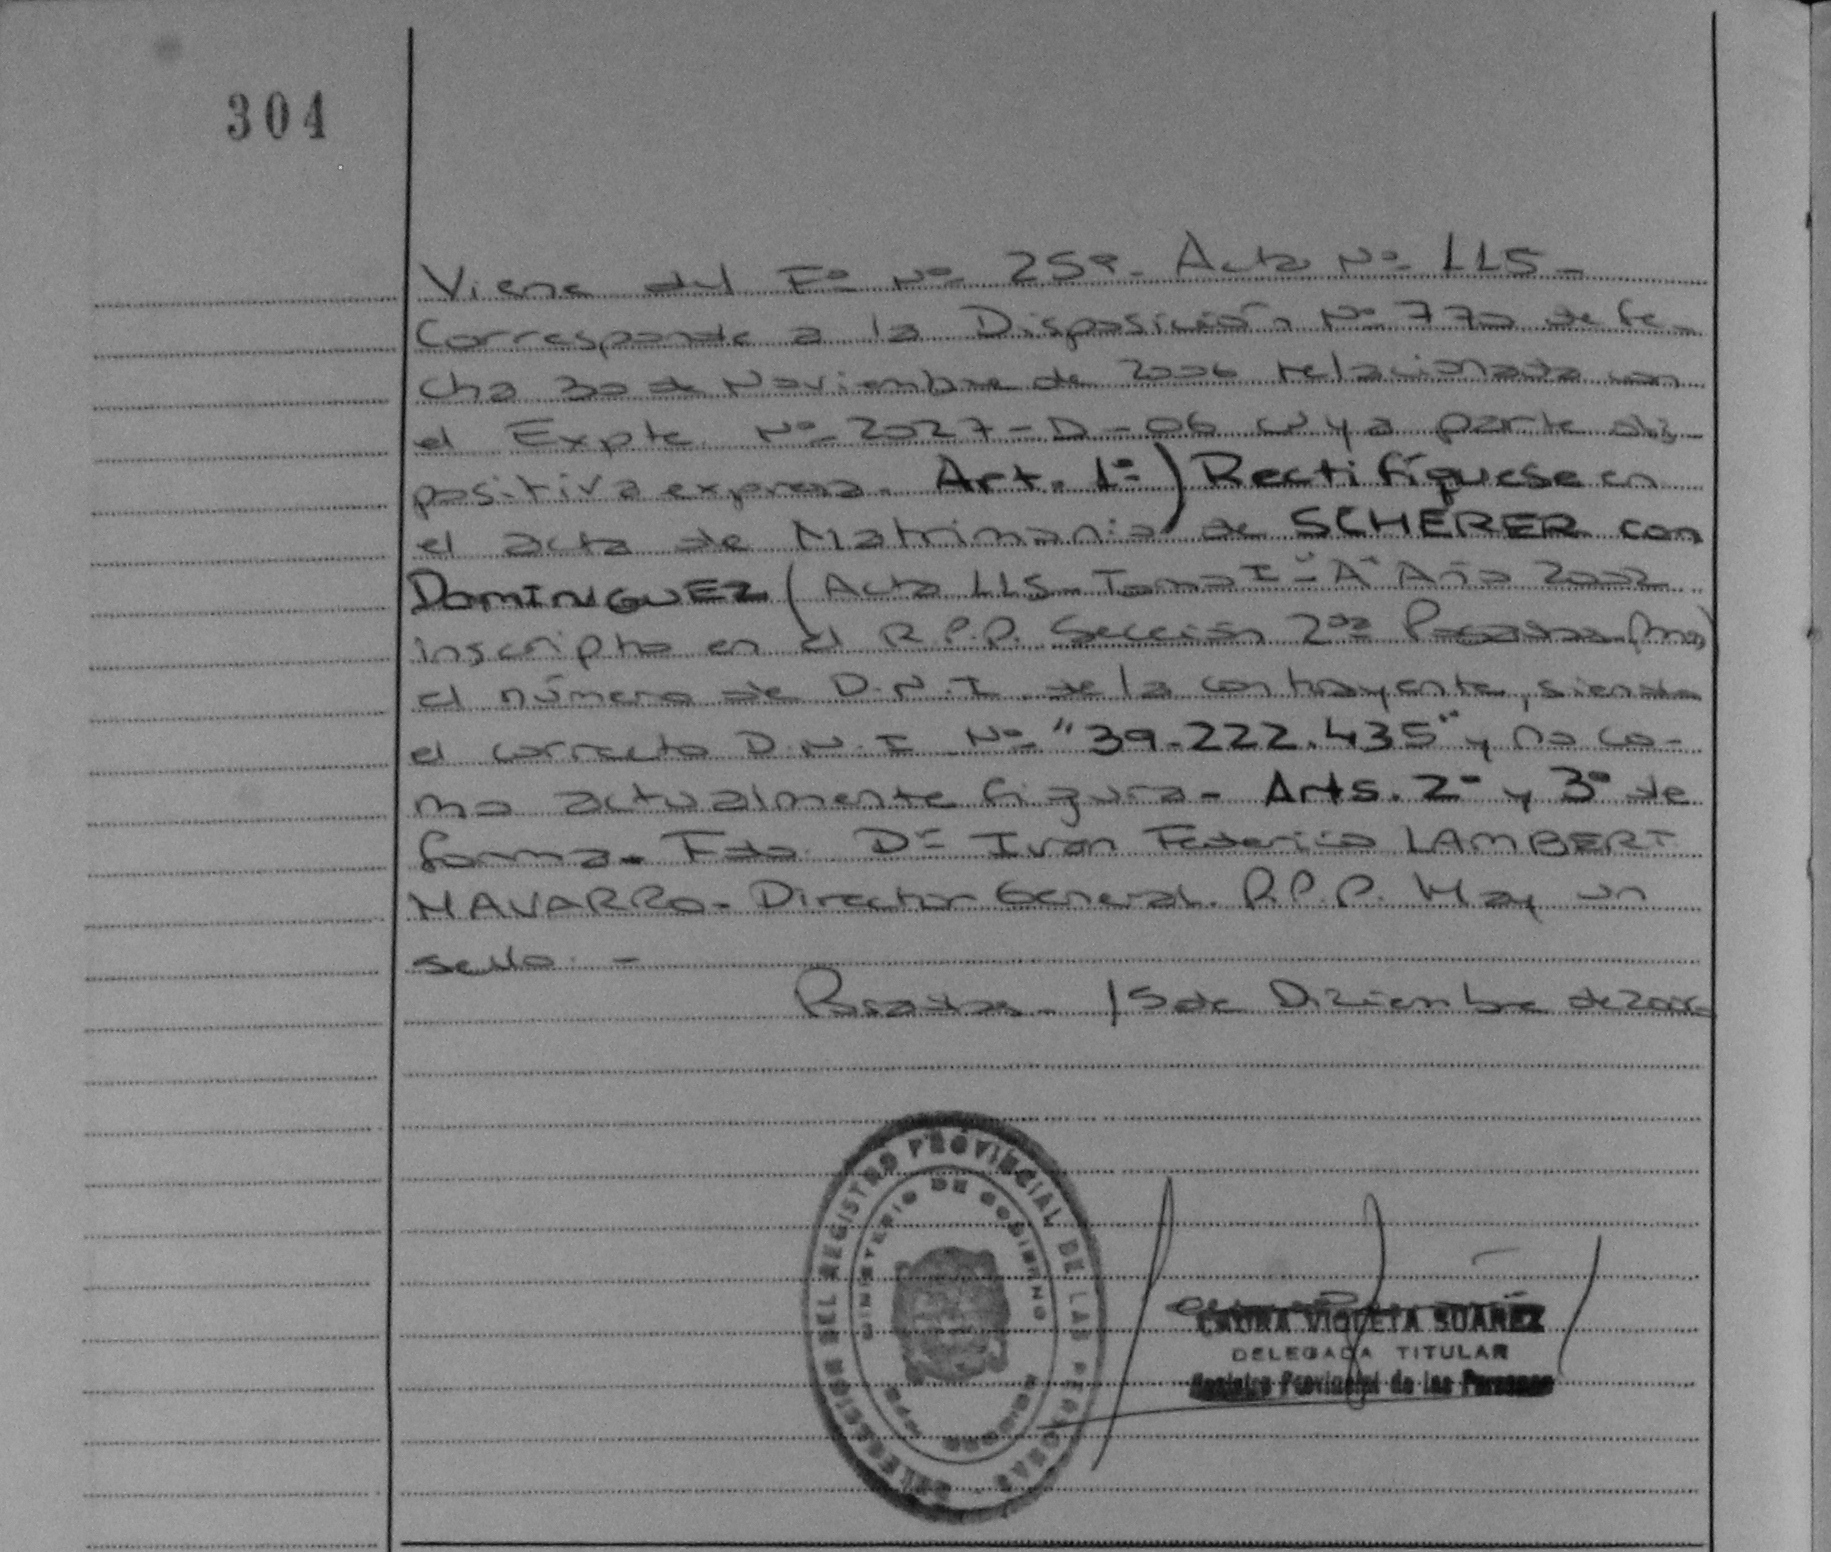 304
Viene del Fº Nº 259- Acta Nº 115-
Corresponde a la Disposición Nº 770 de fe-
cha 30 de Noviembre de 2006 relacionada con
el Expte. Nº 2027-D-06 cuya parte dis-
positiva expresa. Art. 1º) Rectifíquese en
el acta de Matrimonio de SCHERER con
DOMINGUEZ (Acta 115- Tomo I-"A" Año 2002
inscripta en el R.P.P. Sección 2da Posadas (Mnes)
el número de D.N.I. de la contrayente, siendo
el correcto D.N.I Nº "39.222.435" y no co-
mo actualmente figura- Arts. 2º y 3º de
forma. Fdo. Dº Ivan Federico LAMBERT
NAVARRO- Director General. R.P.P. Hay un
sello. -
Posadas. 15 de Diziembre de
DELEGACION DEL REGISTRO PROVINCIAL DE LAS PERSONAS
MINISTERIO DE GOBIERNO
VIOLETA SUAREZ
DELEGADA TITULAR
Registro Provincial de las Personas